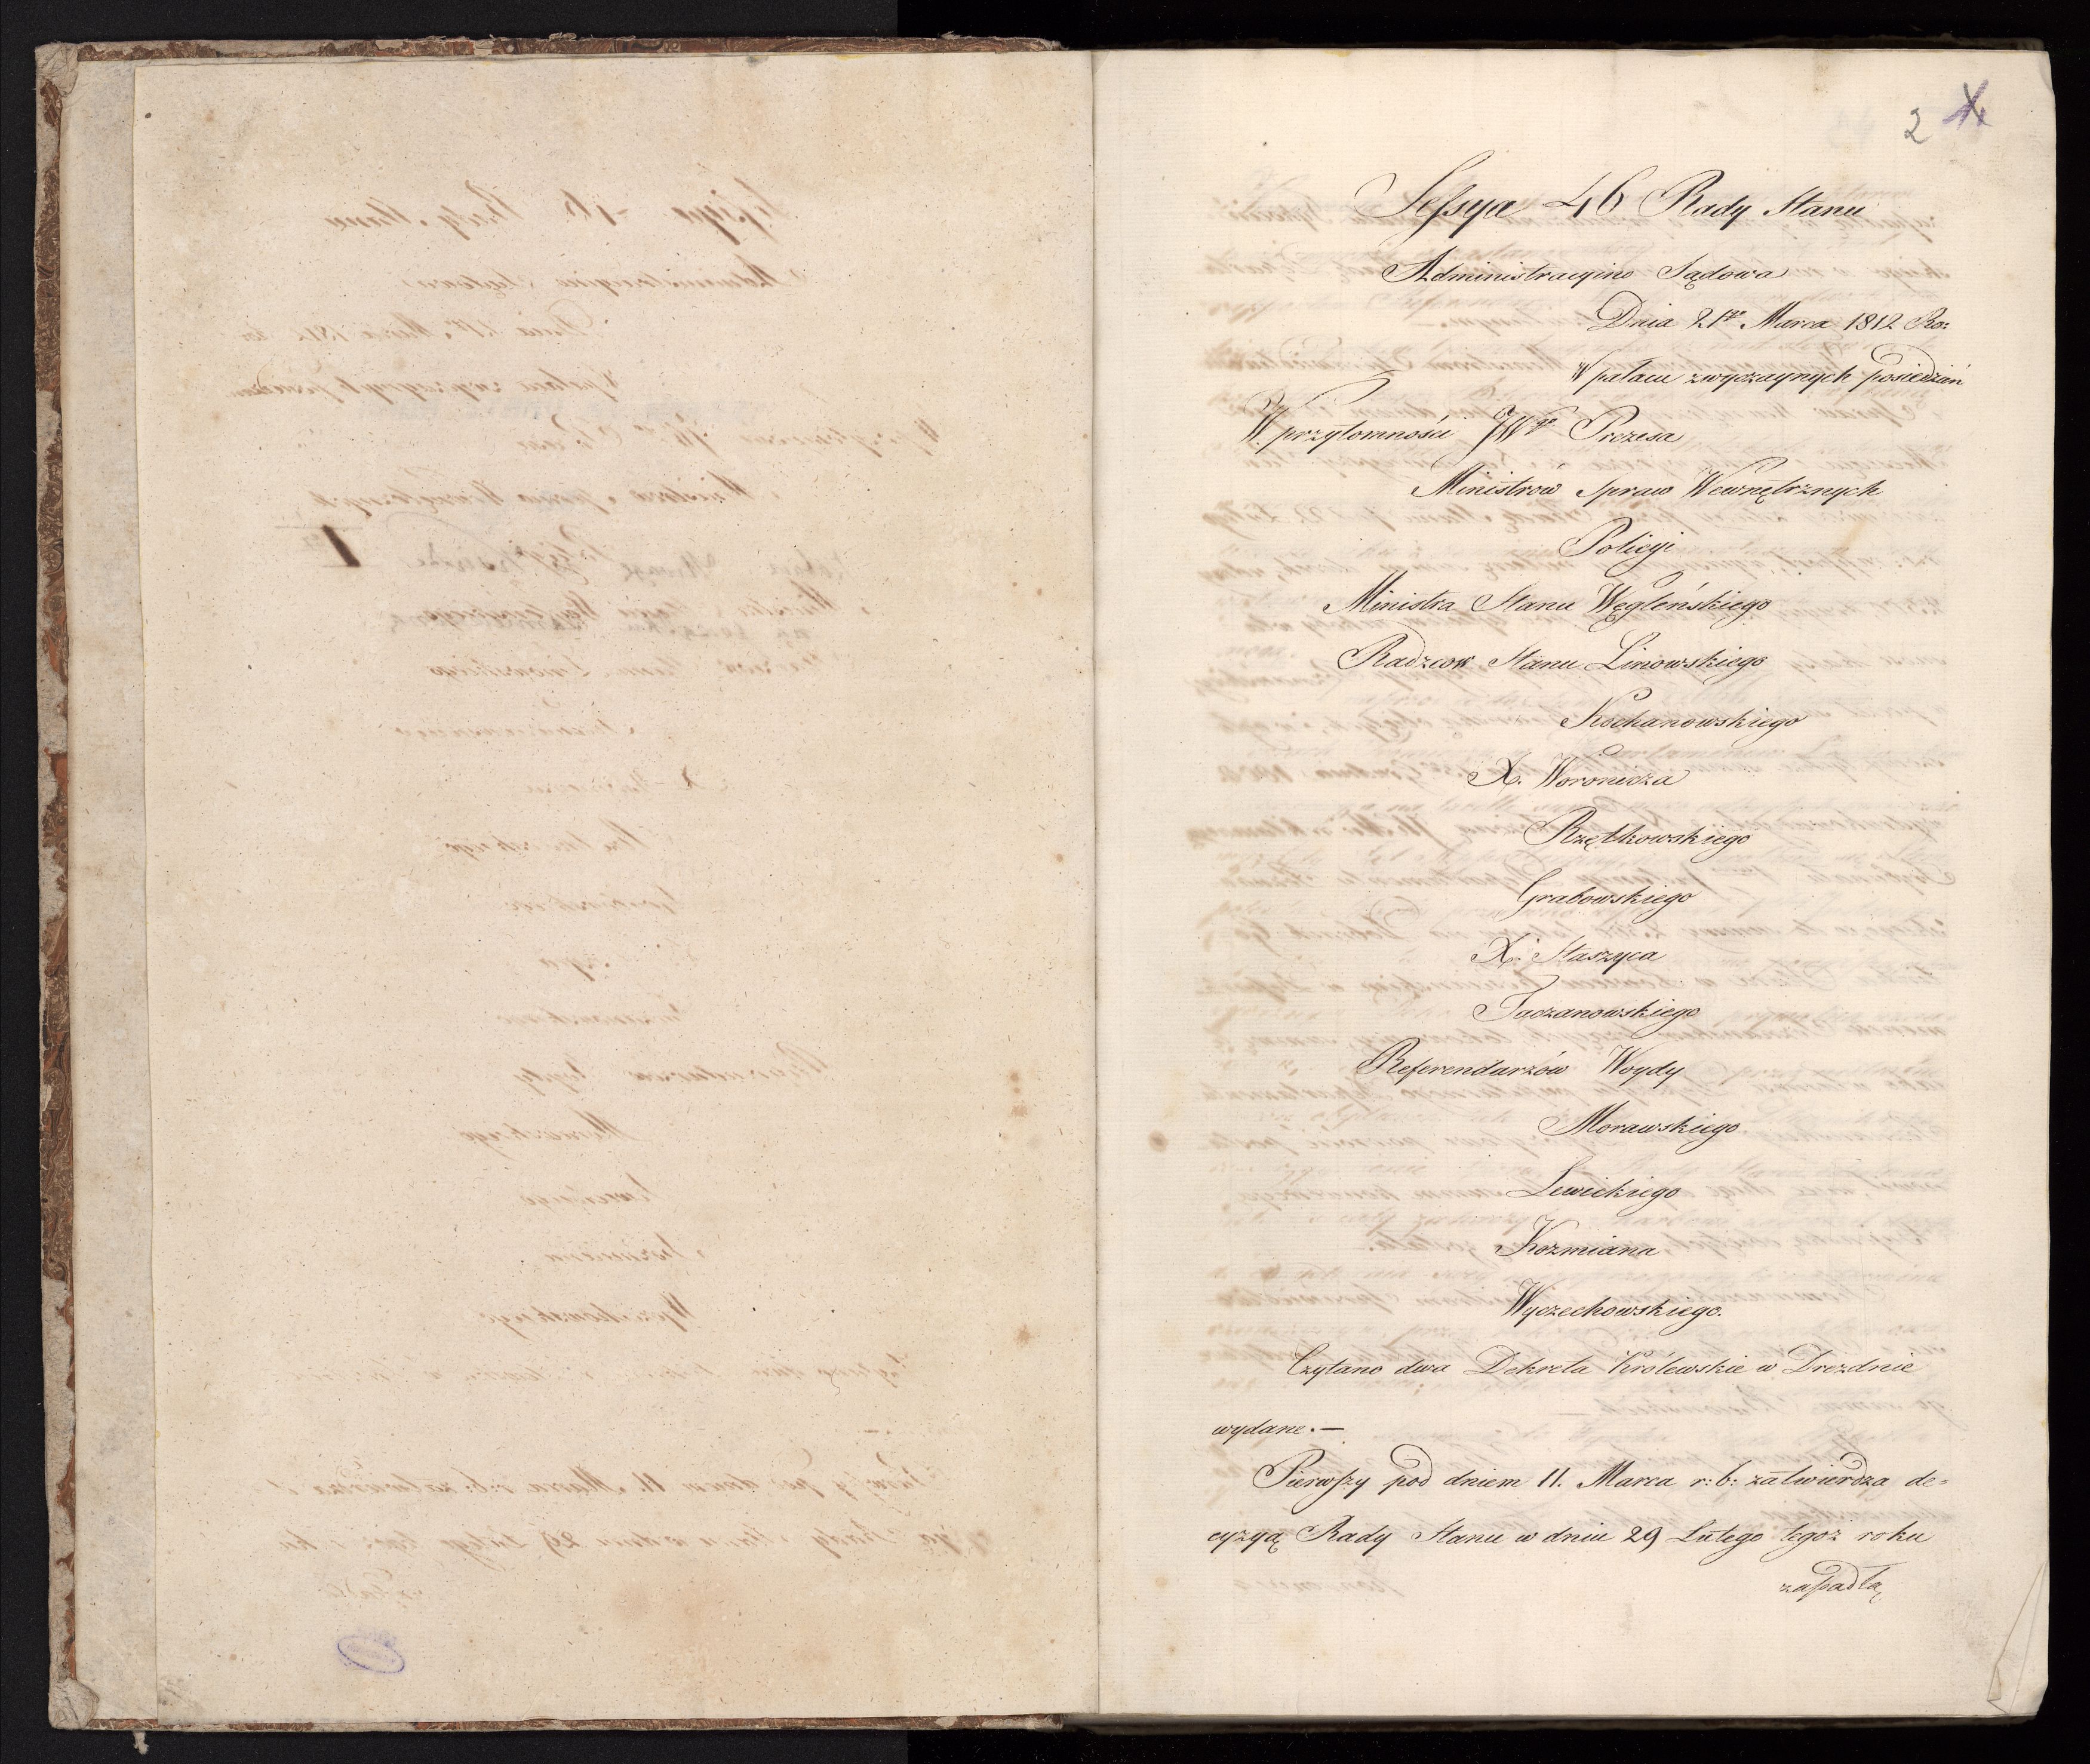 2
Sessya 46 Rady Stanu
Administracyino Sądowa
Dnia 21go Marca 1812 Ro:
W pałacu zwyczaynych posiedzań
W przytomności JWgo Prezesa
Ministrów Spraw Wewnętrznych
Policyi
Ministra Stanu Węgleńskiego
Radzcow Stanu Linowskiego
Kochanowskiego
X. Woronicza
Rzętkowskiego
Grabowskiego
X. Staszyca
Taczanowskiego
Referendarzów Woydy
Morawskiego
Lewickiego
Kozmiana
Wyczechowskiego.
Czytano dwa Dekreta Królewskie w Dreznie
wydane.—
Pierwszy pod dniem 11. Marca r: b: zatwierdza de=
cyzyą Rady Stanu w dniu 29 Lutego tegoż roku
zapadłą